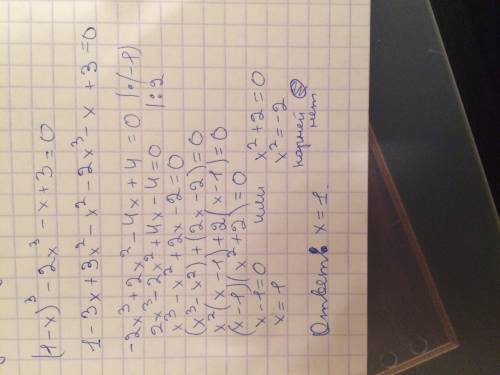 (1-x)³ - 2x³ - x + 3 = 0
1 - 3x + 3x² - x² - 2x³ - x + 3 = 0
-2x³ + 2x² - 4x + 4 = 0 |:(-1)
2x³ - 2x² + 4x - 4 = 0 |:2
x³ - x² + 2x - 2 = 0
(x³ - x²) + (2x - 2) = 0
x²(x - 1) + 2(x - 1) = 0
(x - 1)(x² + 2) = 0
x - 1 = 0 или x² + 2 = 0
x = 1 x² = -2
корней
нет
Ответ x = 1